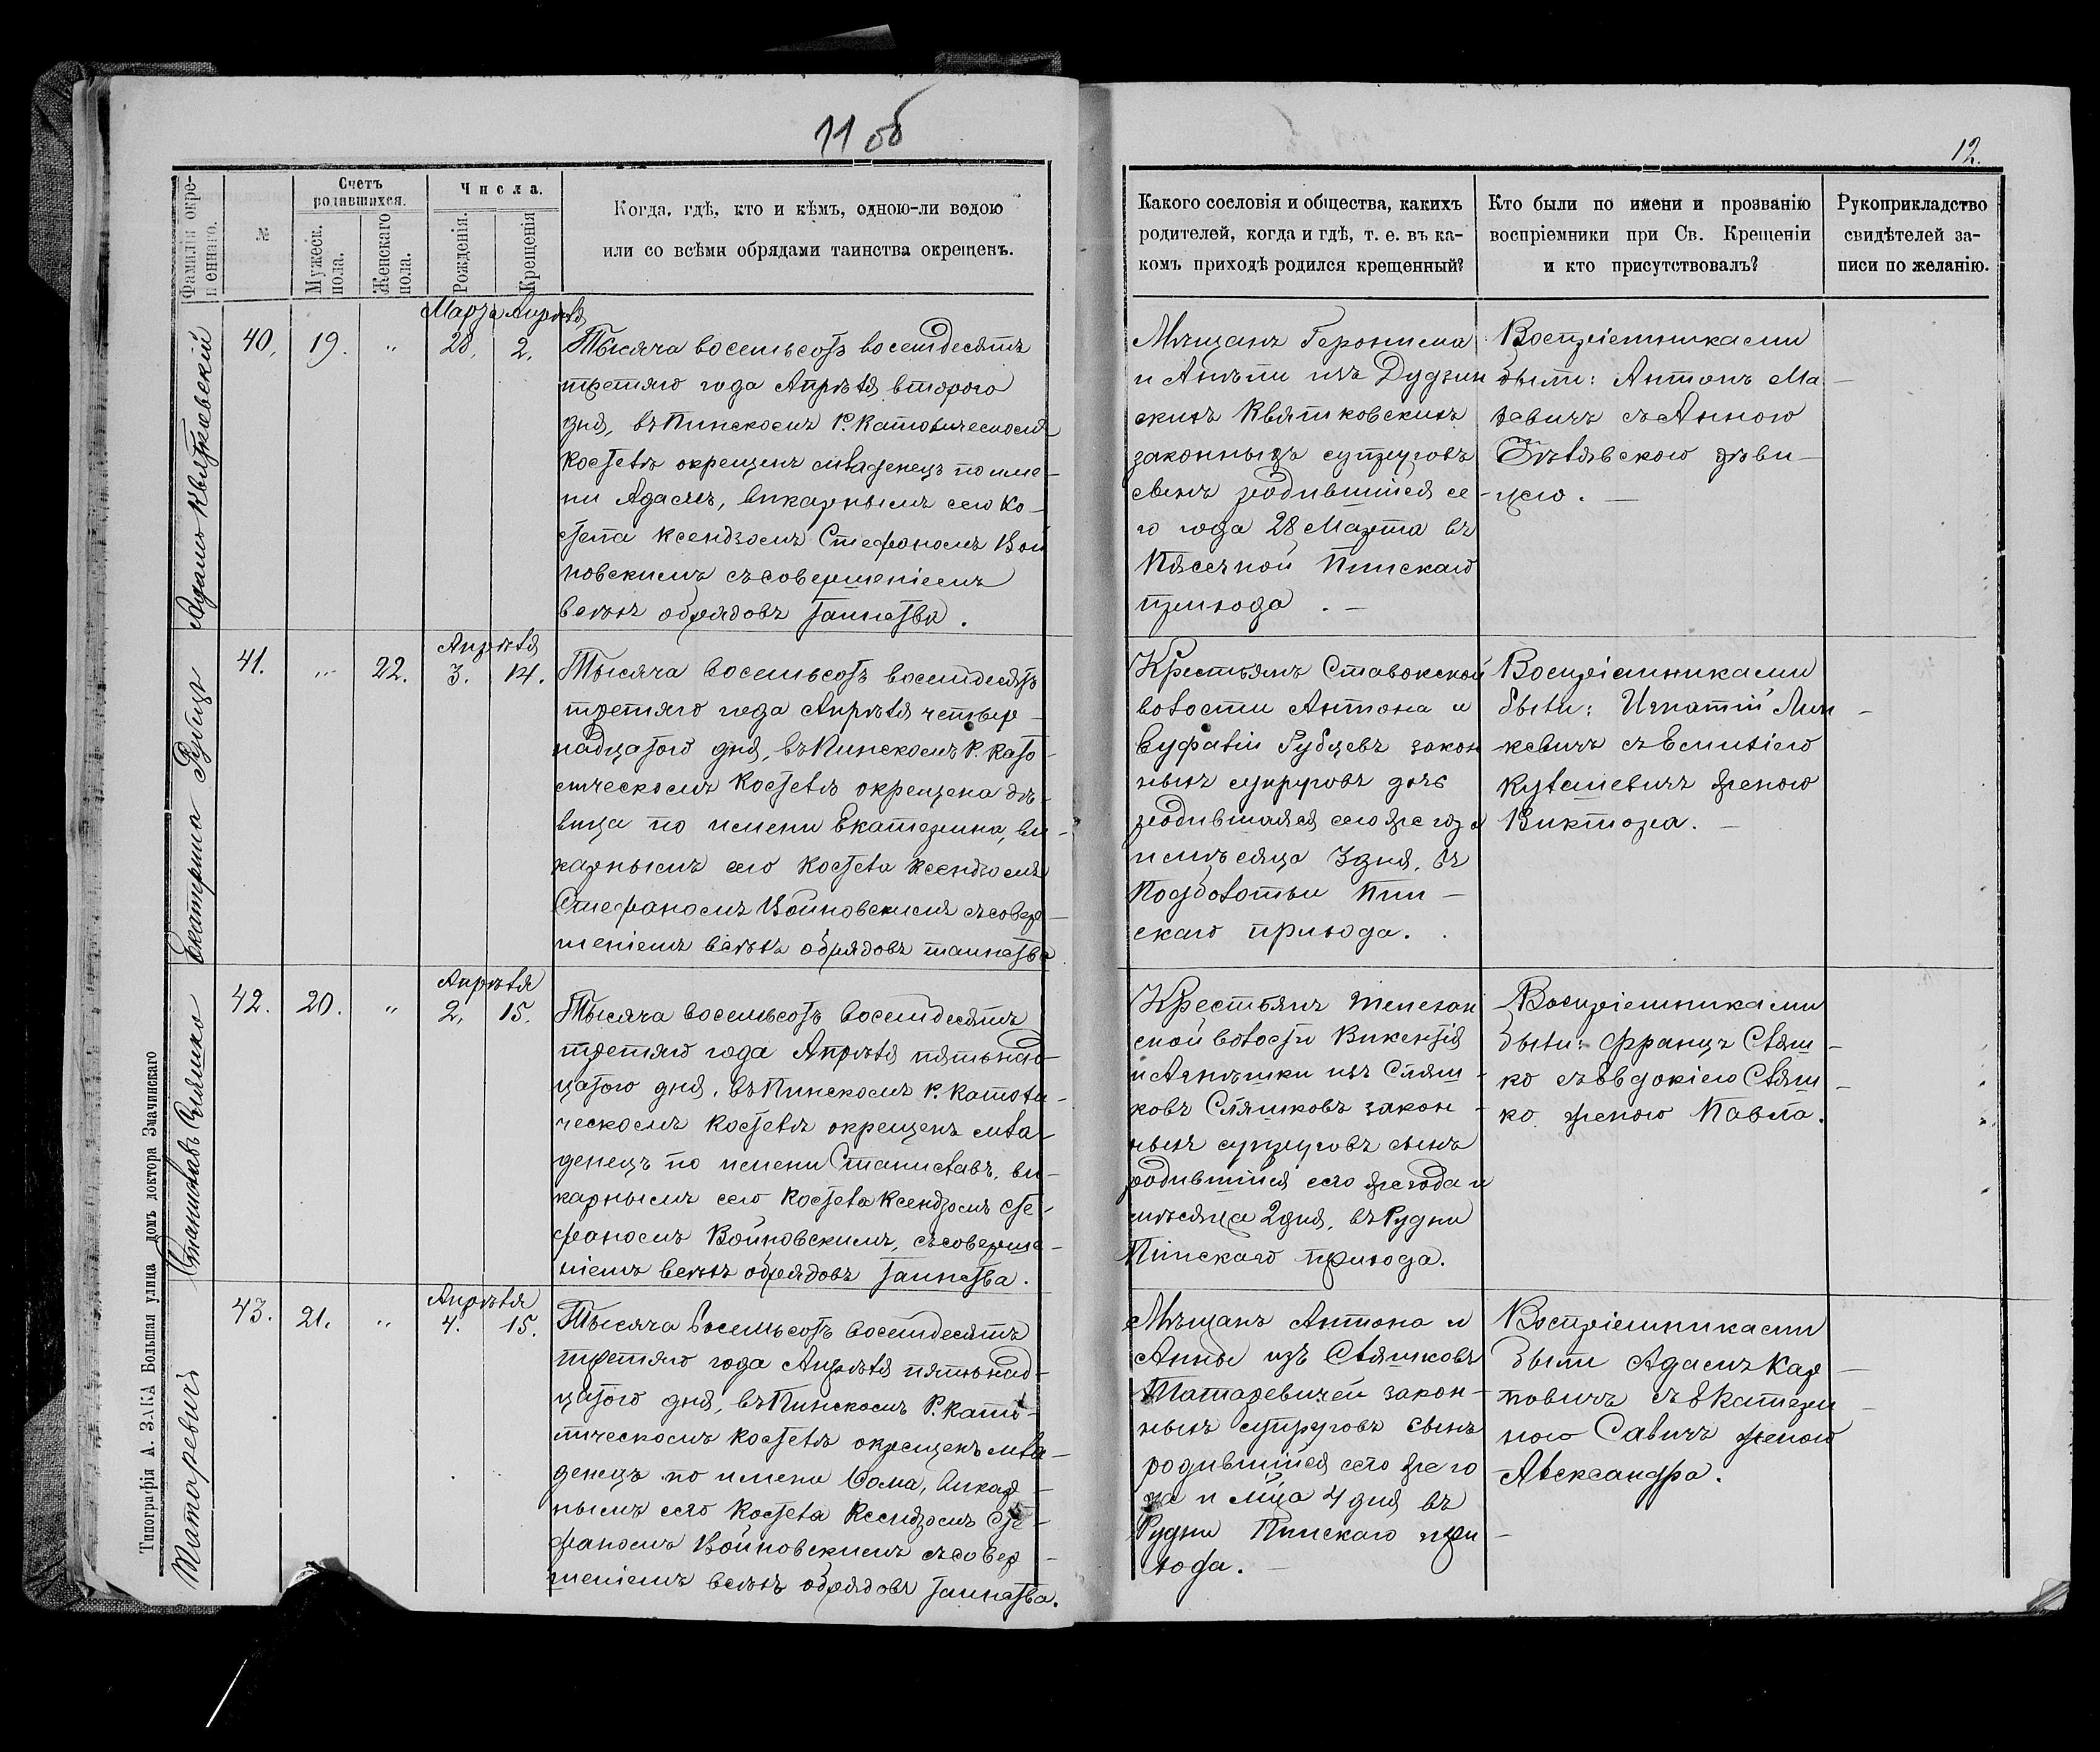 11 об
12.
Фамилія окре-
щеннаго.
№
Счетъ
родившихся.
Мужеск.
пола.
Женскаго
пола.
Числа.
Рожденія.
Крещенія
Когда, гдѣ, кто и кѣмъ, одною-ли водою
или со всѣми обрядами таинства окрещенъ.
Какого сословія и общества, какихъ
родителей, когда и гдѣ, т. е. въ ка-
комъ приходѣ родился крещенный?
Кто были по имени и прозванію
воспріемники при Св. Крещеніи
и кто присутствовалъ?
Рукоприкладство
свидѣтелей за-
писи по желанію.
Адамъ Квятковскій
40.
19.
"
Марта Апрѣля
28. 2.
Тысяча восемьсотъ восемдесятъ
третяго года Апрѣля второго
дня, въ Пинскомъ Р. Католическомъ
костелѣ окрещенъ младенецъ по име-
ни Адамъ, викарнымъ сего ко-
стела ксендзомъ Стефаномъ Вой
новскимъ съ совершеніемъ
всѣхъ обрядовъ таинства.
Мѣщанъ Геронима
и Анѣли изъ Дудзин
скихъ Квятковскихъ
законныхъ супруговъ
сынъ родившійся се-
го года 28 Марта въ
Пѣсечной Пинскаго
прихода. —
Воспріемниками
были: Антонъ Ма-
вичъ съ Анною
дѣви-
цею. —
Екатерина Рубецъ
41.
"
22.
Апрѣля
3. 14.
Тысяча восемьсотъ восемдесятъ
третяго года Апрѣля четыр-
надцатого дня, въ Пинскомъ Р. Като-
лическомъ костелѣ окрещена дѣ-
вица по имени Екатерина, ви-
карнымъ сего костела ксендзомъ
Стефаномъ Войновскимъ съ совер-
шеніемъ всѣхъ обрядовъ таинства
Крестьянъ Ставокской
волости Антона и
Евфаліи Рубцевъ закон
ныхъ супруговъ дочь
родившаяся сего же года
и мѣсяца 3 дня, въ
Подболотьи Пин-
скаго прихода.
Воспріемниками
были: Игнатій Мин-
кевичъ съ Емиліею
Кулешевичъ женою
Виктора. —
Станиславъ Сляшко
42.
20.
"
Апрѣля
2. 15.
Тысяча восемьсотъ восемдесятъ
третяго года Апрѣля пятьнад-
цатого дня, въ Пинскомъ Р. Католи-
ческомъ костелѣ окрещенъ мла-
денецъ по имени Станиславъ, ви-
карнымъ сего костела ксендзомъ Сте-
фаномъ Войновскимъ, съ соверше-
ніемъ всѣхъ обрядовъ таинства.
Крестьянъ Телехан
ской волости Викентія
и Агнѣшки изъ Сляш-
ковъ Сляшковъ закон-
ныхъ супруговъ сынъ
родившійся сего же года и
мѣсяца 2 дня, въ Рудни
Пинскаго прихода.
Воспріемниками
были: Францъ Сляш-
ко съ Евдокіею Сляш-
ко женою Павла.
Татаревичъ
43.
21.
"
Апрѣля
4. 15.
Тысяча восемьсотъ восемдесятъ
третяго года Апрѣля пятьнад-
цатого дня, въ Пинскомъ Р. Като-
лическомъ костелѣ окрещенъ мла-
денецъ по имени Ѳома, викар-
нымъ сего костела ксендзомъ Сте-
фаномъ Войновскимъ съ совер-
шеніемъ всѣхъ обрядовъ таинства.
Мѣщанъ Антона и
Анны изъ Сляшковъ
Татаревичей закон-
ныхъ супруговъ сынъ
родившійся сего же го
да и мца 4 дня въ
Рудни Пинскаго при-
хода. —
Воспріемниками
были Адамъ Кар-
повичъ съ Екатери-
ною Савичъ женою
Александра.
Типографія А. ЗАКА Большая улица домъ доктора Змачинскаго